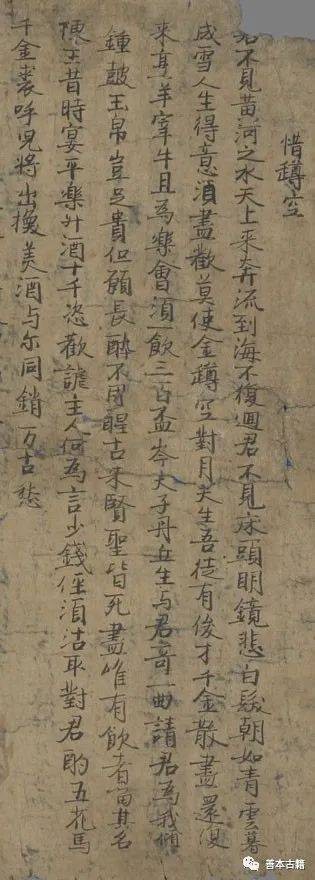 惜罇空
君不見黃河之水天上來奔流到海不復迴君不見床頭明鏡悲白髮朝如青雲暮
成雪人生得意須盡歡莫使金罇空對月天生吾徒有俊才千金散盡還復
來烹羊宰牛且為樂會須一飲三百盃岑夫子丹丘生与君哥一曲請君為我傾
鍾皷玉帛豈足貴但願長醉不用醒古來賢聖皆死盡唯有飲者留其名
陳王昔時宴平樂斗酒十千恣歡謔主人何為言少錢徑須沽取對君酌五花馬
千金裘呼兒將出換美酒与尔同銷万古愁
善本古籍